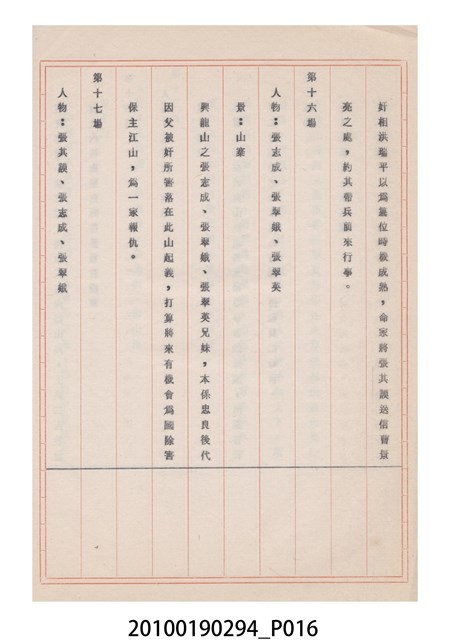 奸相洪瑞平以爲篡位時機成熟，命家將張其談送信曹景
亮之處，約其帶兵前來行事。
第十六場
人物：張志成、張翠娥、張翠英
景：山寨
興龍山之張志成、張翠娥、張翠英兄妹，本係忠良後代
因父被奸所害落在此山起義，打算將來有機會爲國除害
保主江山，爲一家報仇。
第十七場
人物：張其談、張志成、張翠娥
20100190294_P016